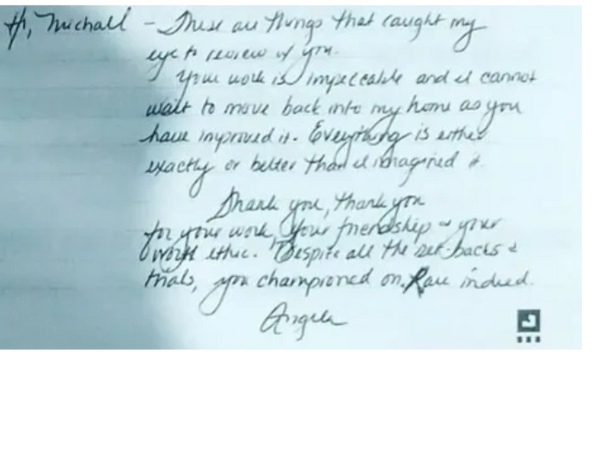 Hi, Michall - These are things that caught my
eye to review w/ you.
Your work is impeccable and I cannot
wait to move back into my home as you
have improved it. Everything is either
exactly or better than I imagined it.
Thank you, thank you
for your work, your friendship & your
work ethic. Despite all the set-backs &
trials, you championed on. Rare indeed.
Angela